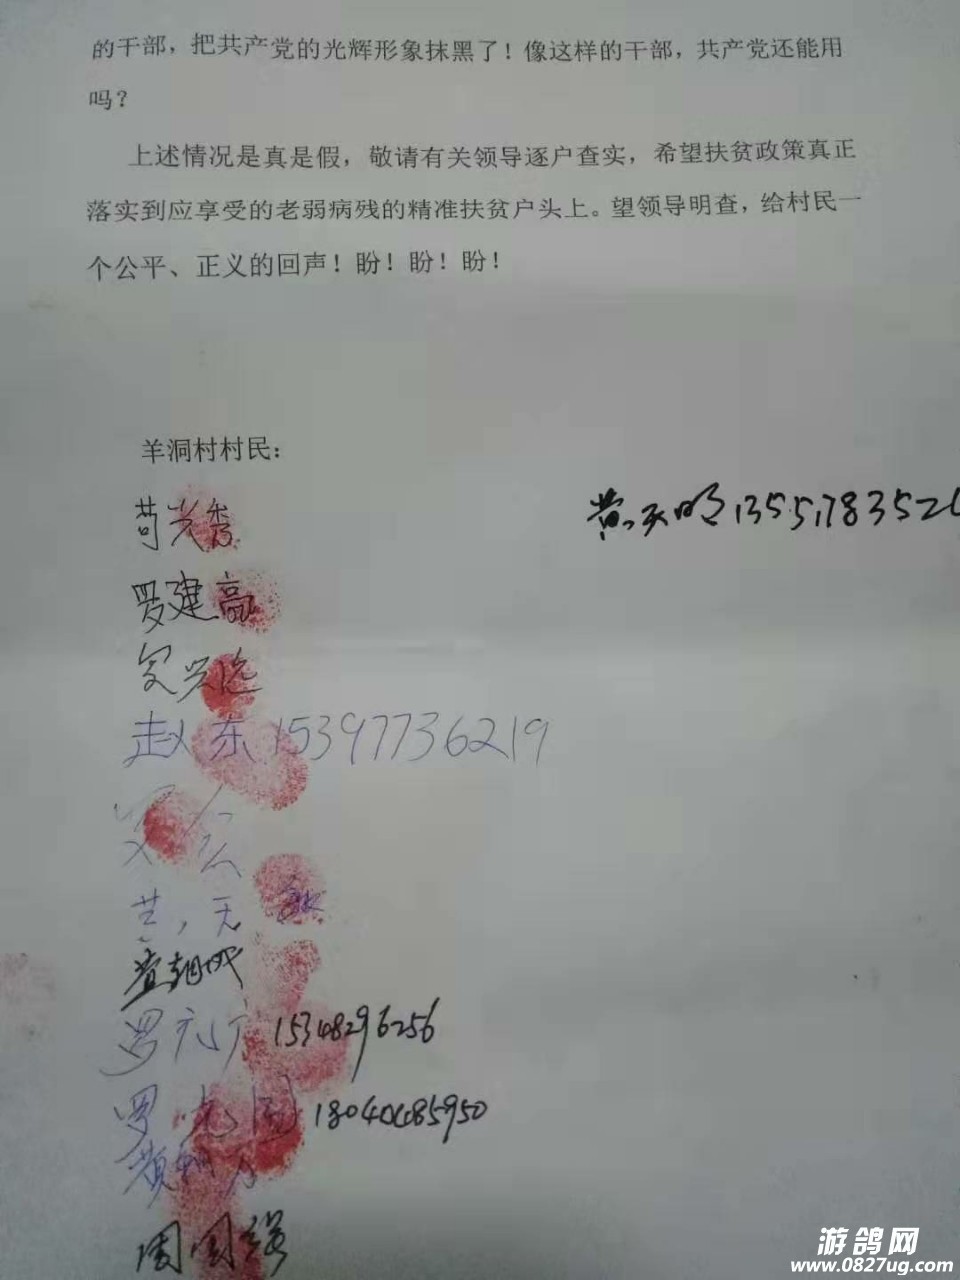 的干部，把共产党的光辉形象抹黑了！像这样的干部，共产党还能用
吗？
上述情况是真是假，敬请有关领导逐户查实，希望扶贫政策真正
落实到应享受的老弱病残的精准扶贫户头上。望领导明查，给村民一
个公平、正义的回声！盼！盼！盼！
羊洞村村民：
苟兴秀
黄天明 1355178352
罗建高
赵东 15397736219
罗元广 15348296256
罗 18040485950
周国强
游鸽网
www.0827ug.com